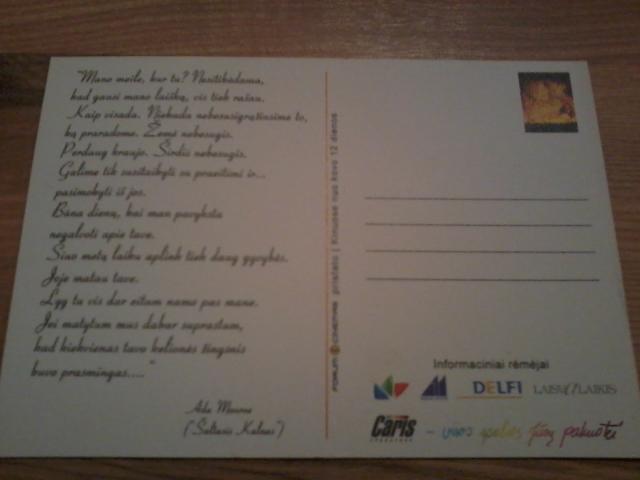 "Mano meile, kur tu? Nesitikėdama,
kad gausi mano laišką, vis tiek rašau.
Kaip visada. Niekada nebesusigrąžinsime to,
ką praradome. Žemė nebesugis.
Perdaug kraujo. Širdis nebesugis.
Galime tik susitaikyti su praeitimi ir...
pasimokyti iš jos.
Būna dienų, kai man pavyksta
negalvoti apie tave.
Šiuo metų laiku aplink tiek daug gyvybės.
Joje matau tave.
Lyg tu vis dar eitum namo pas mane.
Jei matytum mus dabar suprastum,
kad kiekvienas tavo kelionės žingsnis
buvo prasmingas...."
Ada Monroe
("Šaltasis Kalnas")
FORUM CINEMAS pristato | Kinuose nuo kovo 12 dienos
Informaciniai rėmėjai
DELFI LAISVALAIKIS
Caris
- visos spalvos Jūsų pakuotei